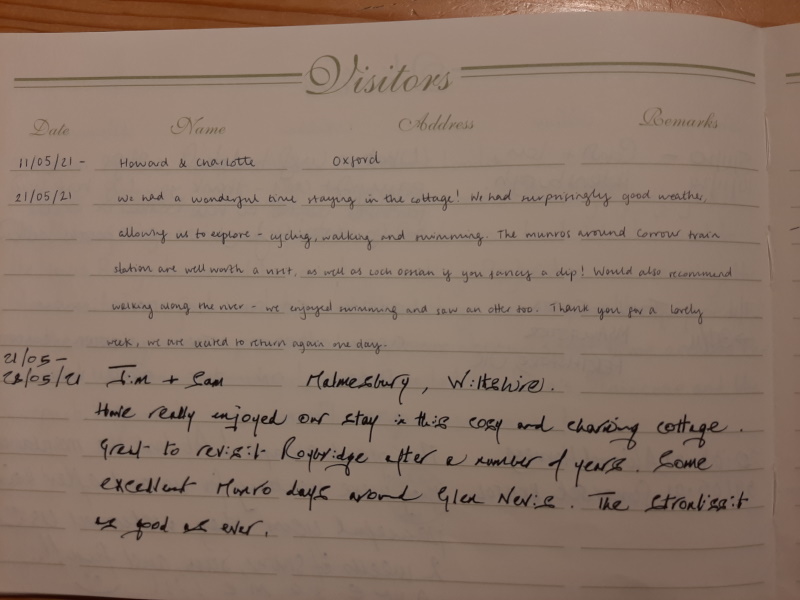 Visitors
Date Name Address Remarks
11/05/21 - Howard & Charlotte Oxford
21/05/21 We had a wonderful time staying in the cottage! We had surprisingly good weather,
allowing us to explore - cycling, walking and swimming. The munros around Corrour train
station are well worth a visit, as well as Loch Ossian if you fancy a dip! Would also recommend
walking along the river - we enjoyed swimming and saw an otter too. Thank you for a lovely
week, we are excited to return again one day.
21/05 -
28/05/21 Jim + Sam Malmesbury, Wiltshire.
Have really enjoyed our stay in this cosy and charming cottage.
Great to revisit Roybridge after a number of years. Some
excellent Munro days around Glen Nevis. The
is good as ever.